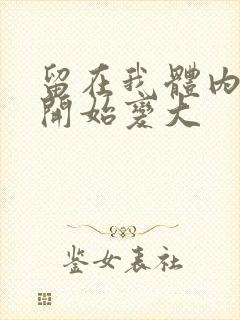 留在我體內
開始變大
鉴女表社